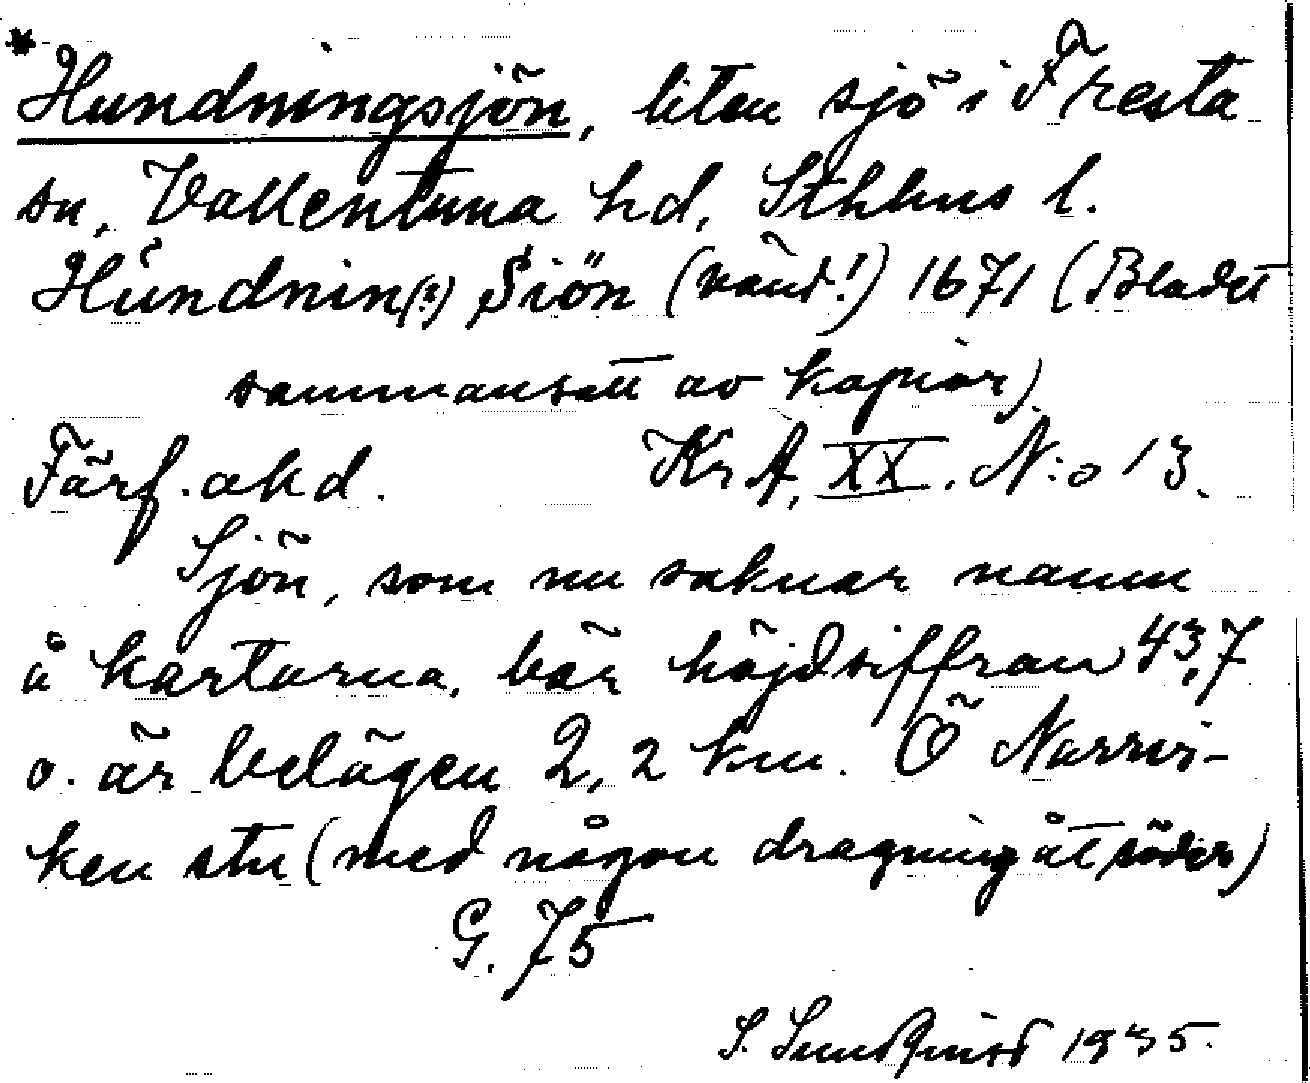 *Hundningsjön, liten sjö i Fresta
sn, Vallentuna hd, Sthlms l.
Hündnin(?) Siön (vänd!) 1671 (Bladet
sammansatt av kopior)
Färf. akd. Kr A, XX. N:o 13.
Sjön, som nu saknar namn
å kartorna, bär höjdsiffran 43,7
o. är belägen 2,2 km. Ö Norrvi-
ken stn (med någon dragning åt söder)
G. 75
S. Lundquist 1935.